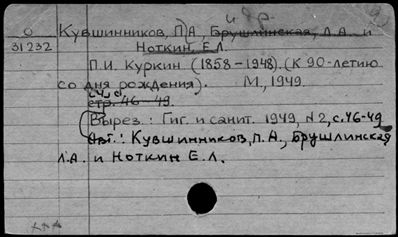 и др.
О Кувшинников, П.А., Брушлинская, Л.А. и
31232 Ноткин, Е.Л.
П.И. Куркин (1858-1948). (К 90-летию
со дня рождения). М., 1949.
стр. 46-49.
Вырез.: Гиг. и санит. 1949, №2, с. 46-49
Авт.: Кувшинников, П.А., Брушлинская
Л.А. и Ноткин Е.Л.